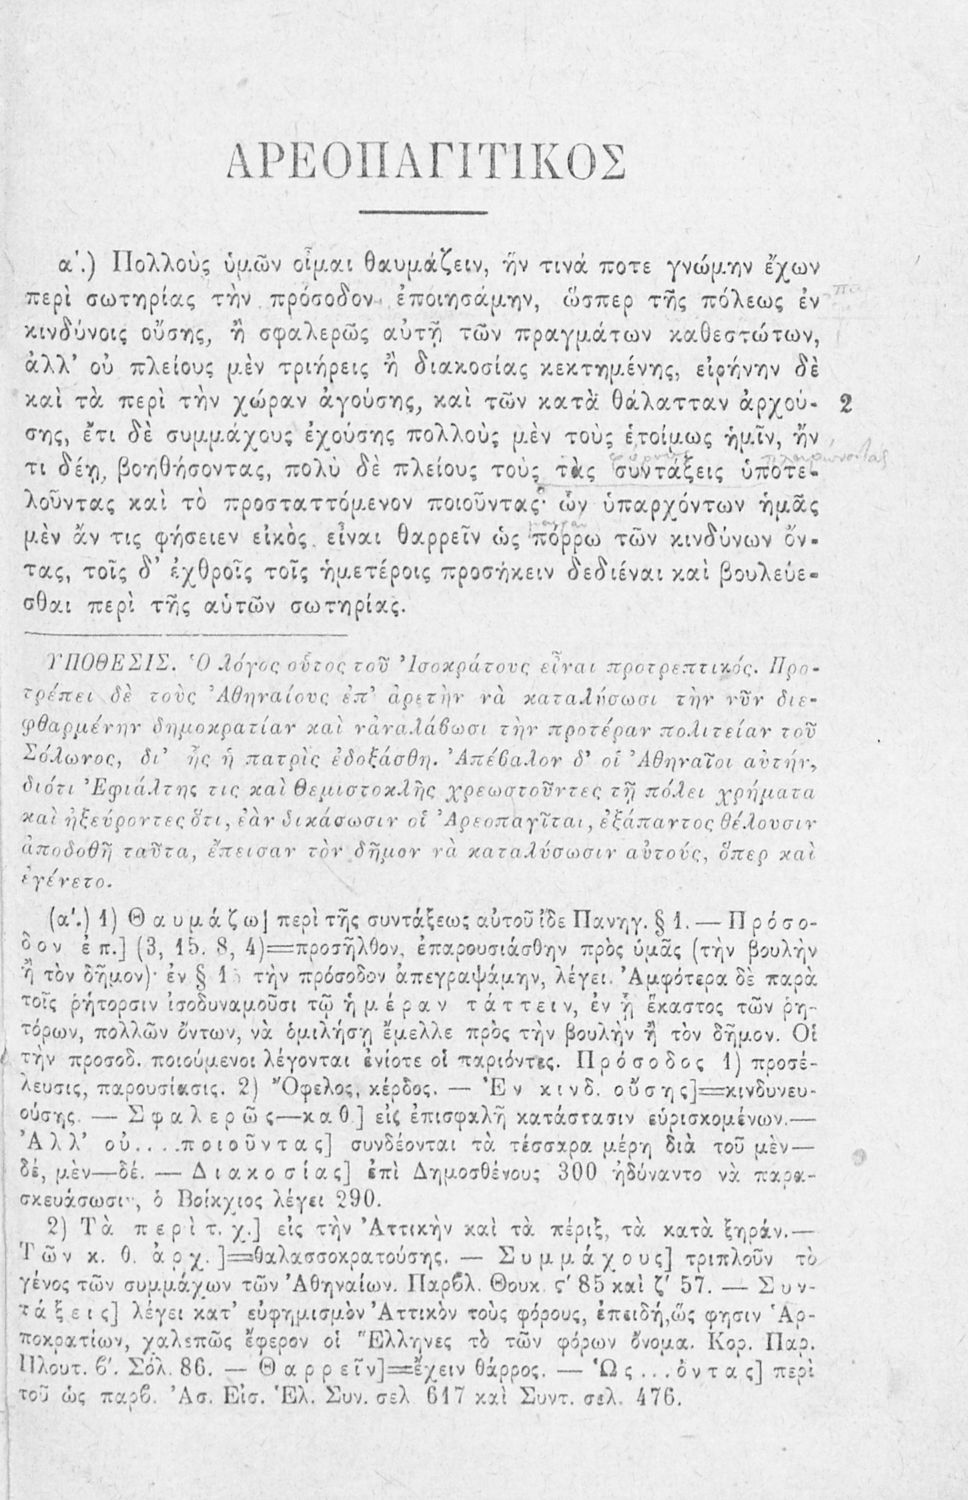 ΑΡΕΟΠΑΓΙΤΙΚΟΣ
α΄.) Πολλοὺς ὑμῶν οἶμαι θαυμάζειν, ἥν τινά ποτε γνώμην ἔχων
περὶ σωτηρίας τὴν πρόσοδον ἐποιησάμην, ὥσπερ τῆς πόλεως ἐν
κινδύνοις οὔσης, ἢ σφαλερῶς αὐτῇ τῶν πραγμάτων καθεστώτων,
ἀλλ' οὐ πλείους μὲν τριήρεις ἢ διακοσίας κεκτημένης, εἰρήνην δὲ
καὶ τὰ περὶ τὴν χώραν ἀγούσης, καὶ τῶν κατὰ θάλατταν ἀρχού- 2
σης, ἔτι δὲ συμμάχους ἐχούσης πολλοὺς μὲν τοὺς ἑτοίμως ἡμῖν, ἤν
τι δέῃ, βοηθήσοντας, πολὺ δὲ πλείους τοὺς τὰς συντάξεις ὑποτε-
λοῦντας καὶ τὸ προσταττόμενον ποιοῦντας· ὧν ὑπαρχόντων ἡμᾶς
μὲν ἄν τις φήσειεν εἰκὸς εἶναι θαρρεῖν ὡς πόρρω τῶν κινδύνων ὄν-
τας, τοῖς δ' ἐχθροῖς τοῖς ἡμετέροις προσήκειν δεδιέναι καὶ βουλεύε-
σθαι περὶ τῆς αὑτῶν σωτηρίας.
ΥΠΟΘΕΣΙΣ. Ὁ λόγος οὗτος τοῦ Ἰσοκράτους εἶναι προτρεπτικός. Προ-
τρέπει δὲ τοὺς Ἀθηναίους ἐπ' ἀρετὴν νὰ καταλύσωσι τὴν νῦν διε-
φθαρμένην δημοκρατίαν καὶ νἀναλάβωσι τὴν προτέραν πολιτείαν τοῦ
Σόλωνος, δι' ἧς ἡ πατρὶς ἐδοξάσθη. Ἀπέβαλον δ' οἱ Ἀθηναῖοι αὐτήν,
διότι Ἐφιάλτης τις καὶ Θεμιστοκλῆς χρεωστοῦντες τῇ πόλει χρήματα
καὶ ἠξεύροντες ὅτι, ἐὰν δικάσωσιν οἱ Ἀρεοπαγῖται, ἐξάπαντος θέλουσιν
ἀποδοθῆ ταῦτα, ἔπεισαν τὸν δῆμον νὰ καταλύσωσιν αὐτούς, ὅπερ καὶ
ἐγένετο.
(α΄.) 1) Θαυμάζω] περὶ τῆς συντάξεως αὐτοῦ ἴδε Πανηγ. § 1. — Πρόσο-
δον ἐπ.] (3, 15. 8, 4)=προσῆλθον, ἐπαρουσιάσθην πρὸς ὑμᾶς (τὴν βουλὴν
ἢ τὸν δῆμον)· ἐν § 15 τὴν πρόσοδον ἀπεγραψάμην, λέγει. Ἀμφότερα δὲ παρὰ
τοῖς ῥήτορσιν ἰσοδυναμοῦσι τῷ ἡμέραν τάττειν, ἐν ᾗ ἕκαστος τῶν ῥη-
τόρων, πολλῶν ὄντων, νὰ ὁμιλήσῃ ἔμελλε πρὸς τὴν βουλὴν ἢ τὸν δῆμον. Οἱ
τὴν προσοδ. ποιούμενοι λέγονται ἐνίοτε οἱ παριόντες. Πρόσοδος 1) προσέ-
λευσις, παρουσίασις. 2) Ὄφελος, κέρδος. — Ἐν κινδ. οὔσης]=κινδυνευ-
ούσης. — Σφαλερῶς—καθ.] εἰς ἐπισφαλῆ κατάστασιν εὑρισκομένων.—
Ἀλλ' οὐ....ποιοῦντας] συνδέονται τὰ τέσσαρα μέρη διὰ τοῦ μὲν—
δέ, μὲν—δέ. — Διακοσίας] ἐπὶ Δημοσθένους 300 ἠδύναντο νὰ παρα-
σκευάσωσιν, ὁ Βοίκχιος λέγει 290.
2) Τὰ περὶ τ. χ.] εἰς τὴν Ἀττικὴν καὶ τὰ πέριξ, τὰ κατὰ ξηράν.—
Τῶν κ. θ. ἀρχ.]=θαλασσοκρατούσης. — Συμμάχους] τριπλοῦν τὸ
γένος τῶν συμμάχων τῶν Ἀθηναίων. Παρβλ. Θουκ. ϛ' 85 καὶ ζ' 57. — Συν-
τάξεις] λέγει κατ' εὐφημισμὸν Ἀττικὸν τοὺς φόρους, ἐπειδή, ὥς φησιν Ἁρ-
ποκρατίων, χαλεπῶς ἔφερον οἱ Ἕλληνες τὸ τῶν φόρων ὄνομα. Κορ. Παρ.
Πλουτ. β'. Σόλ. 86. — Θαρρεῖν]=ἔχειν θάρρος. — Ὡς...ὄντας] περὶ
τοῦ ὡς παρβ. Ἀσ. Εἰσ. Ἑλ. Συν. σελ. 617 καὶ Συντ. σελ. 476.